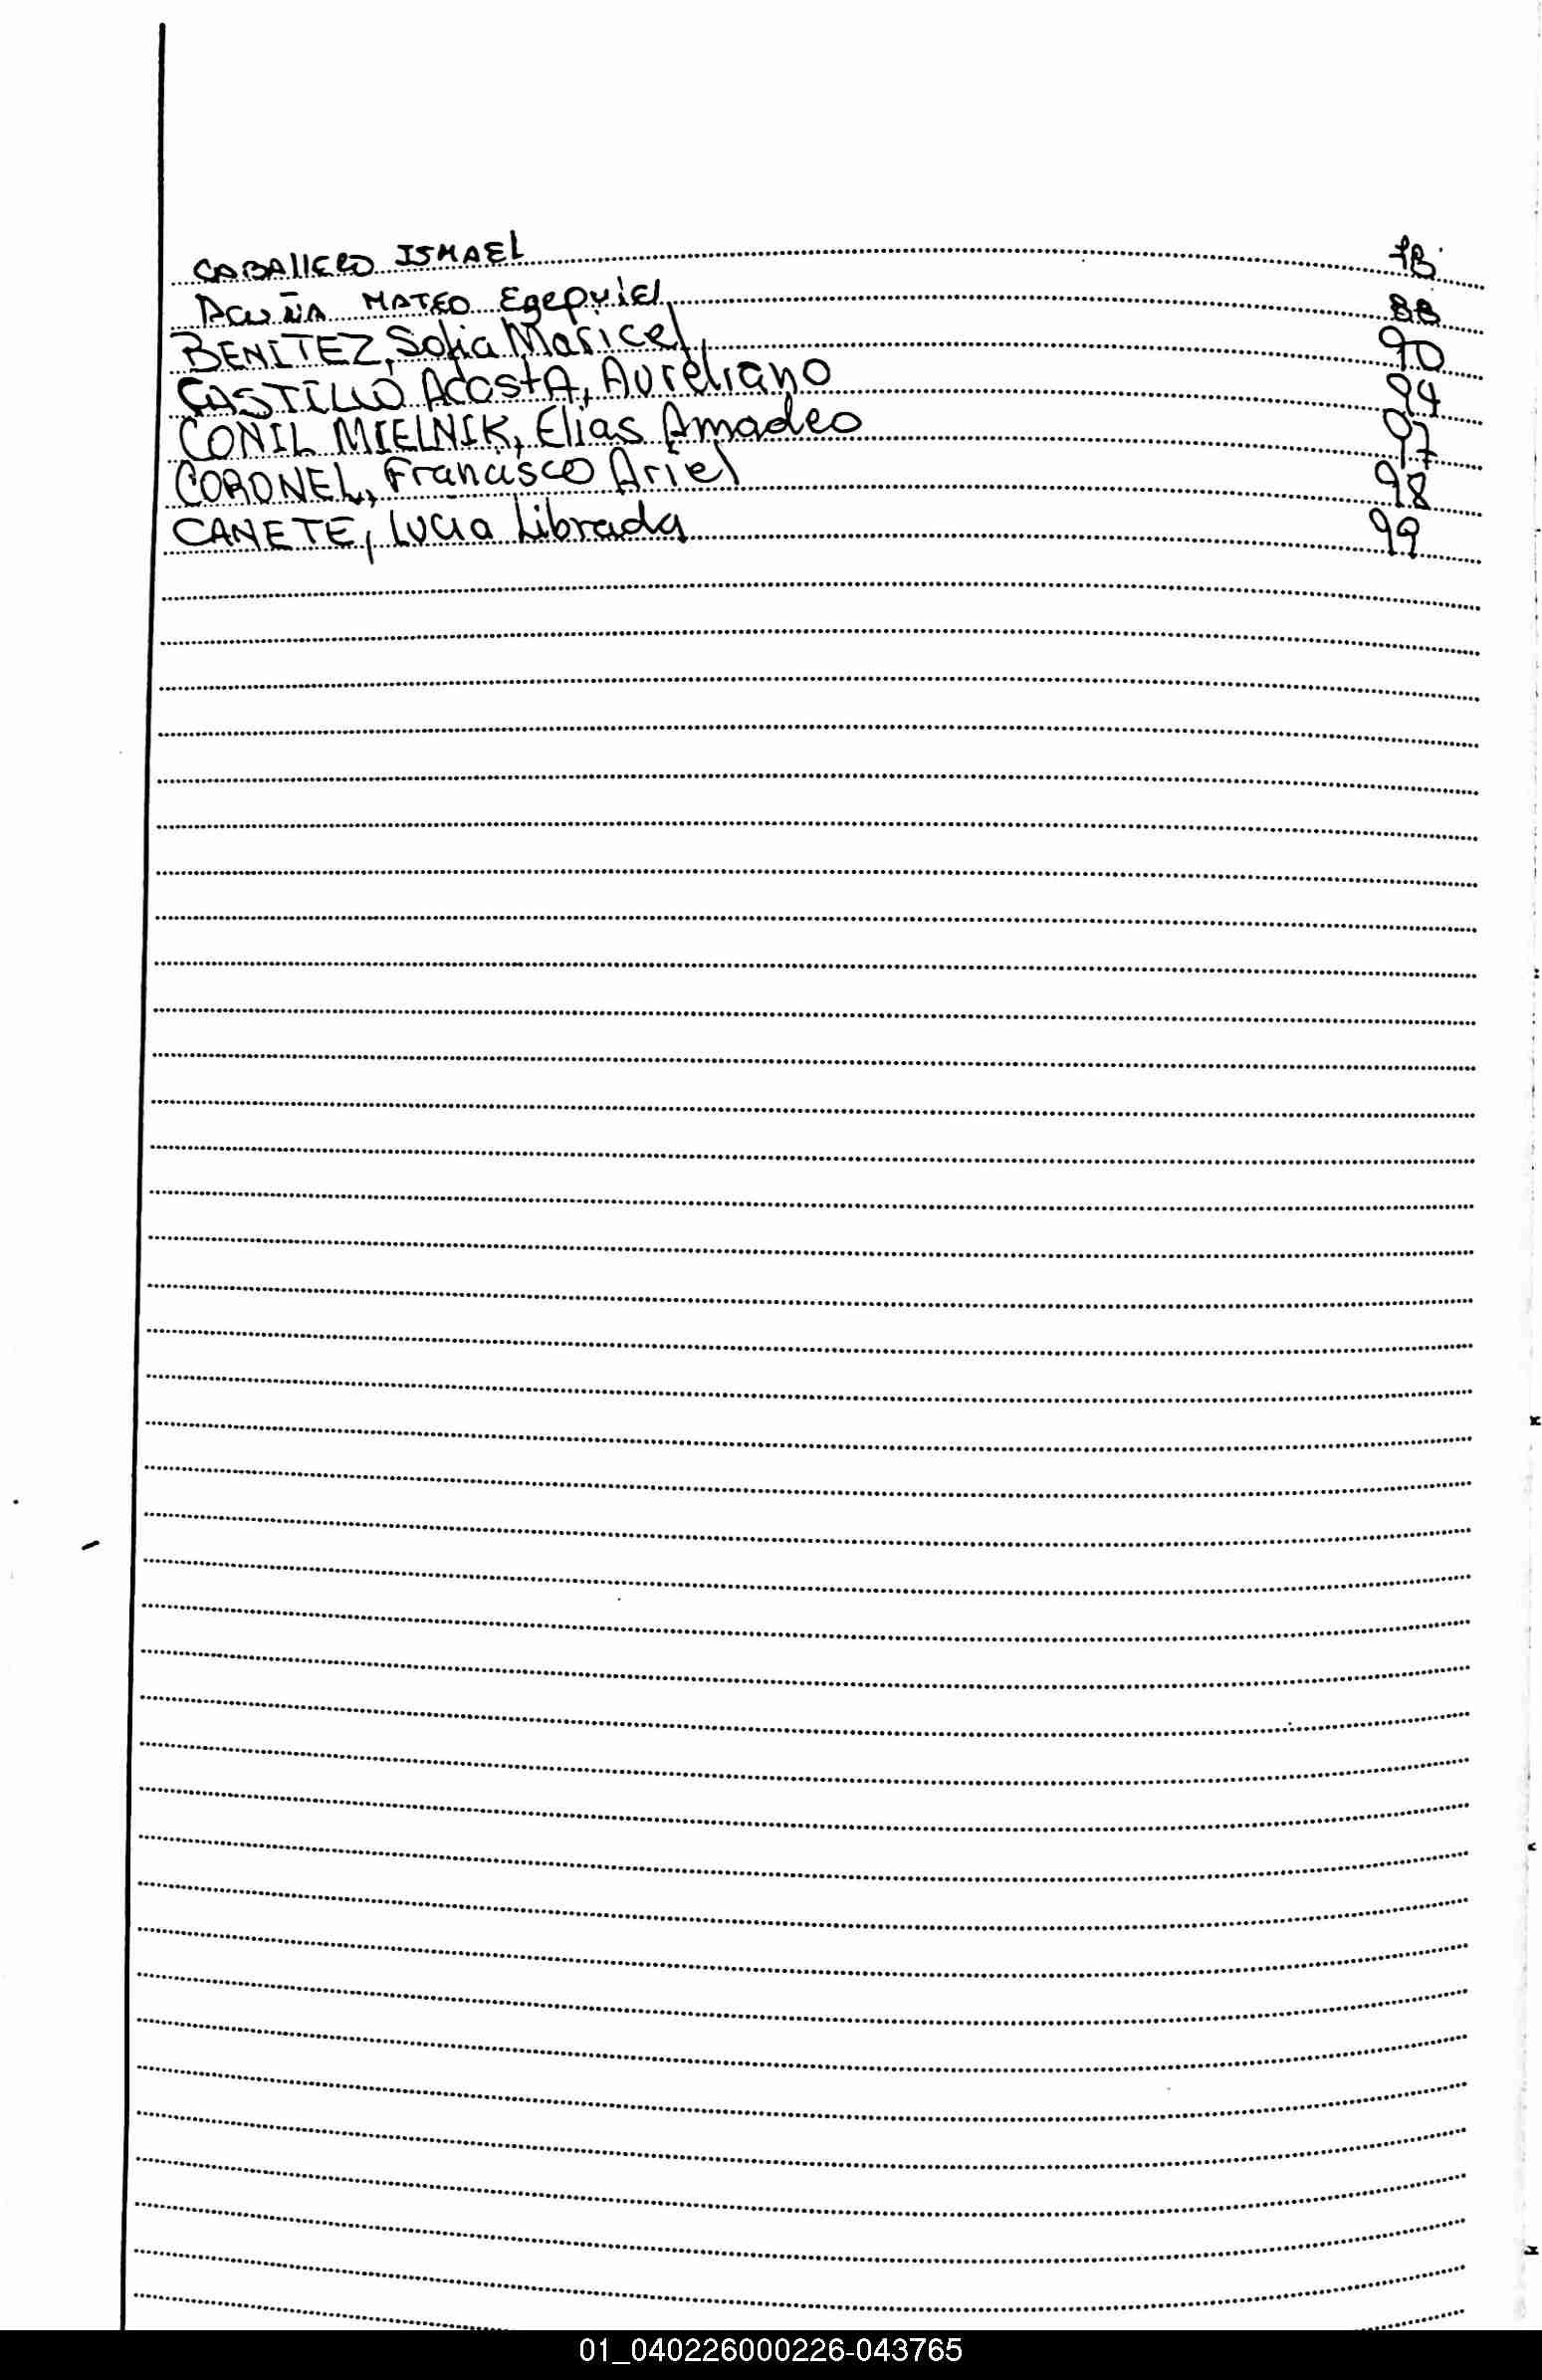 CABALLERO ISMAEL 78
ACUÑA MATEO Ezequiel 88
BENITEZ, Sofia Maricel 90
CASTILLO ACOSTA, Aureliano 94
CONIL MIELNIK, Elias Amadeo 97
CORONEL, Francisco Ariel 98
CANETE, Lucia Librada 99
01_040226000226-043765